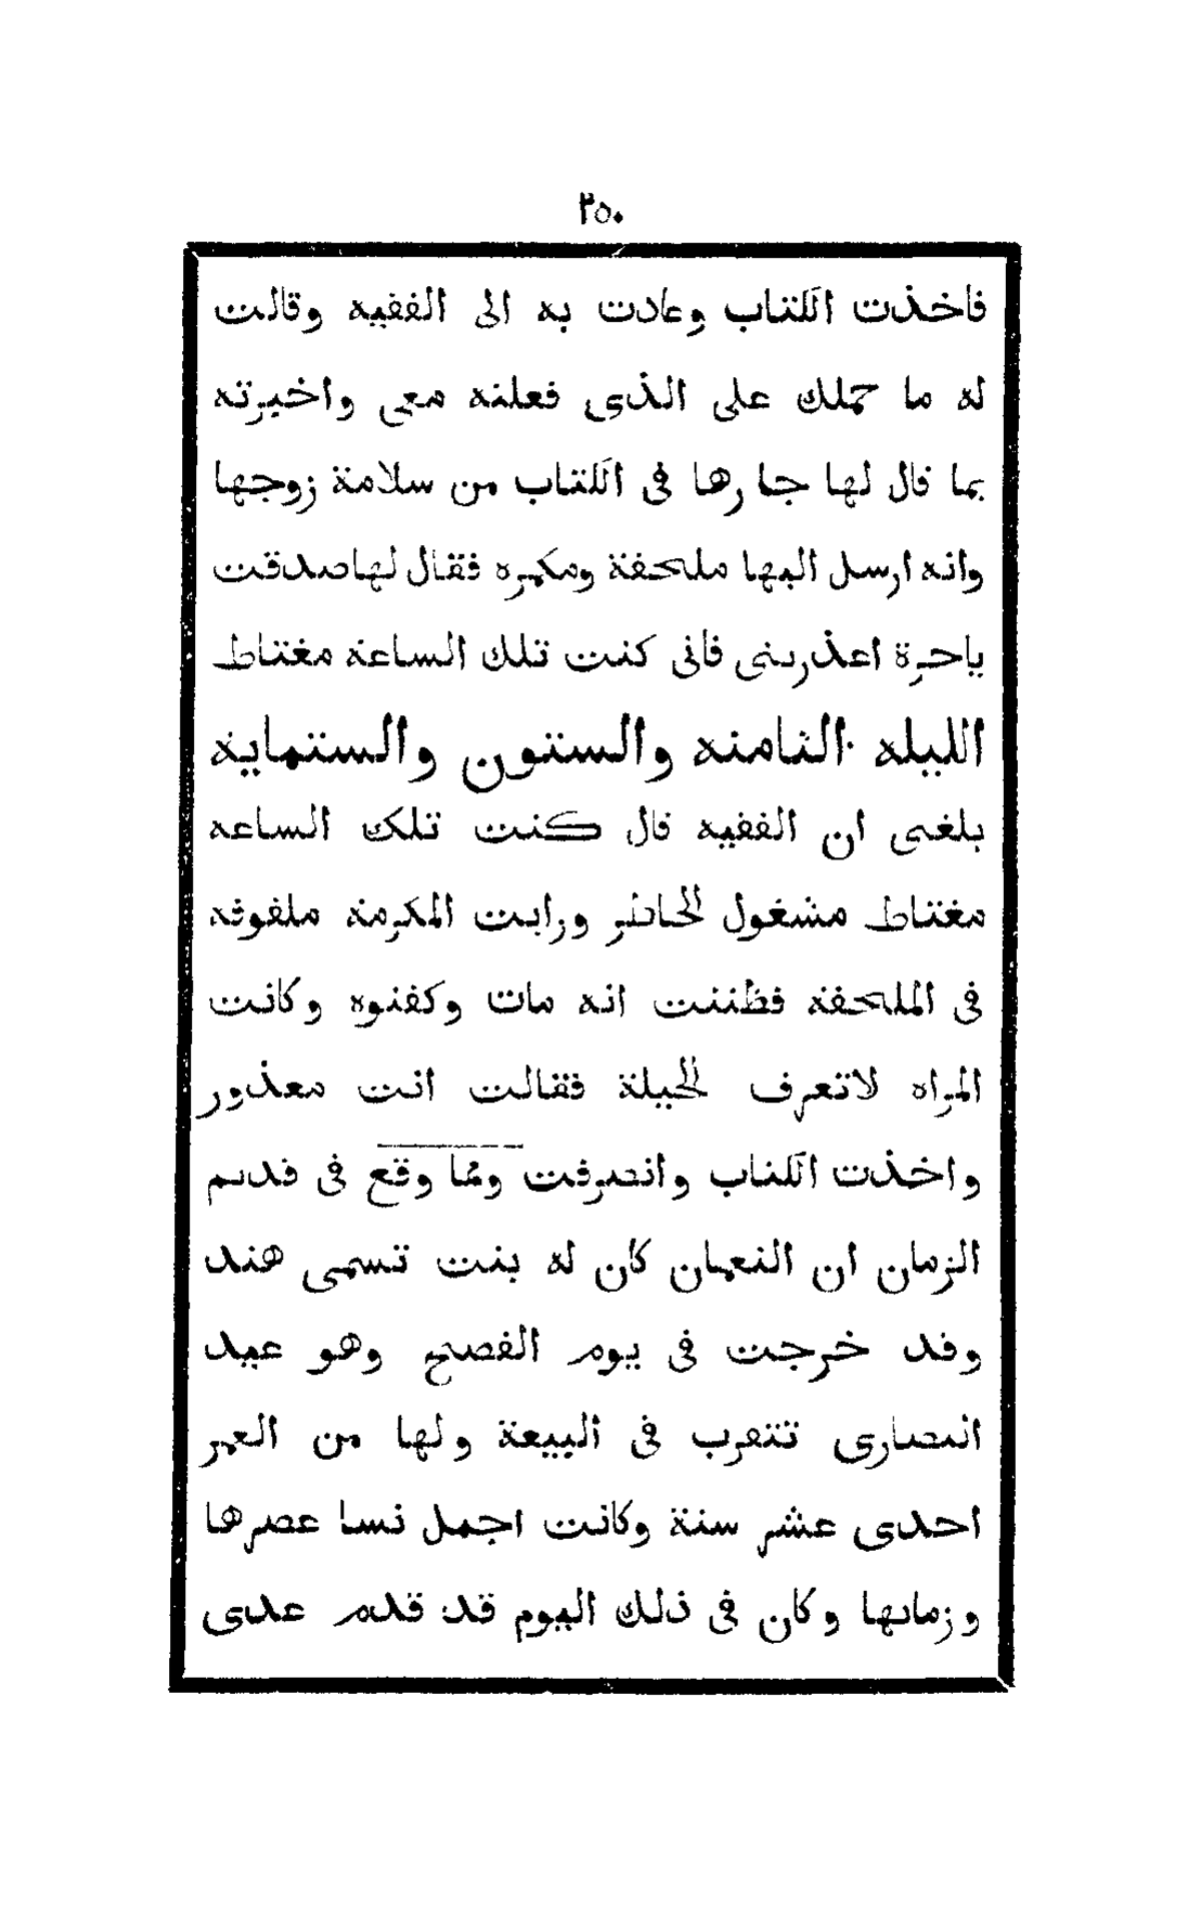 ٢٥٠
فاخذت الكتاب وعادت به الى الفقيه وقالت
له ما حملك على الذى فعلته معى واخبرته
بما قال لها جارها فى الكتاب من سلامة زوجها
وانه ارسل اليها ملحفة ومكمره فقال لها صدقت
ياحرة اعذرينى فانى كنت تلك الساعة مغتاط
الليله الثامنه والستون والستمايه
بلغنى ان الفقيه قال كنت تلك الساعه
مغتاط مشغول الخاطر ورايت المكرمة ملفوفه
فى الملحفة فظننت انه مات وكفنوه وكانت
المراه لا تعرف الحيلة فقالت انت معذور
واخذت الكتاب وانصرفت ومما وقع فى قديم
الزمان ان النعمان كان له بنت تسمى هند
وقد خرجت فى يوم الفصح وهو عيد
النصارى تتقرب فى البيعة ولها من العمر
احدى عشر سنة وكانت اجمل نسا عصرها
وزمانها وكان فى ذلك اليوم قد قدم عدى